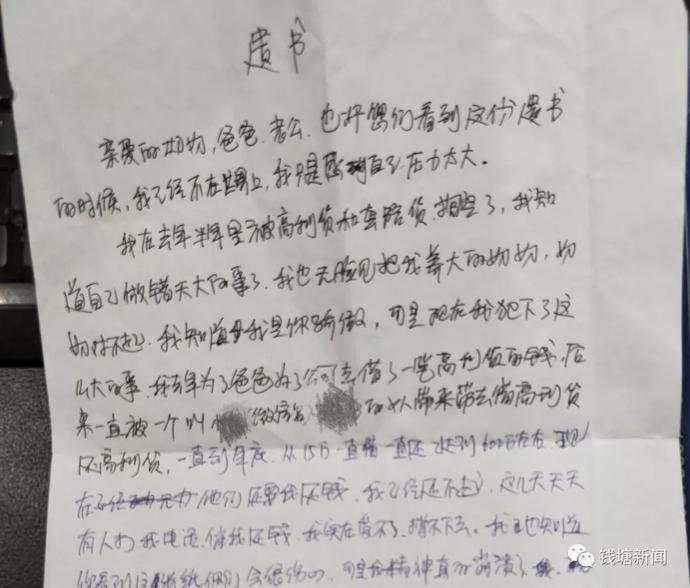 遗书
亲爱的奶奶,爸爸,老公,也许您们看到这份遗书
的时候,我已经不在世界上,我只是感到自己压力太大。
我在去年半年里被高利贷和套路贷 了,我知
道自己做错天大的事了,我也无脸见把我养大的奶奶,奶
奶对不起,我知道 我是你骄傲,可是现在我犯下了这
么大的事,我去年为了爸爸为了公司去借了一笔高利贷的钱,后
来一直被一个叫 (微信名 的人带来带去借高利贷
还高利贷,一直到年底,从15万一直借一直还 到600万左右,
在 他们还要我还钱,我已经还不起了,这几天天天
有人打我电话,催我还钱,我实在受不了,撑不下去,我也知道
你看到这 你们会很伤心,可是我精神真的崩溃了,
钱塘新闻